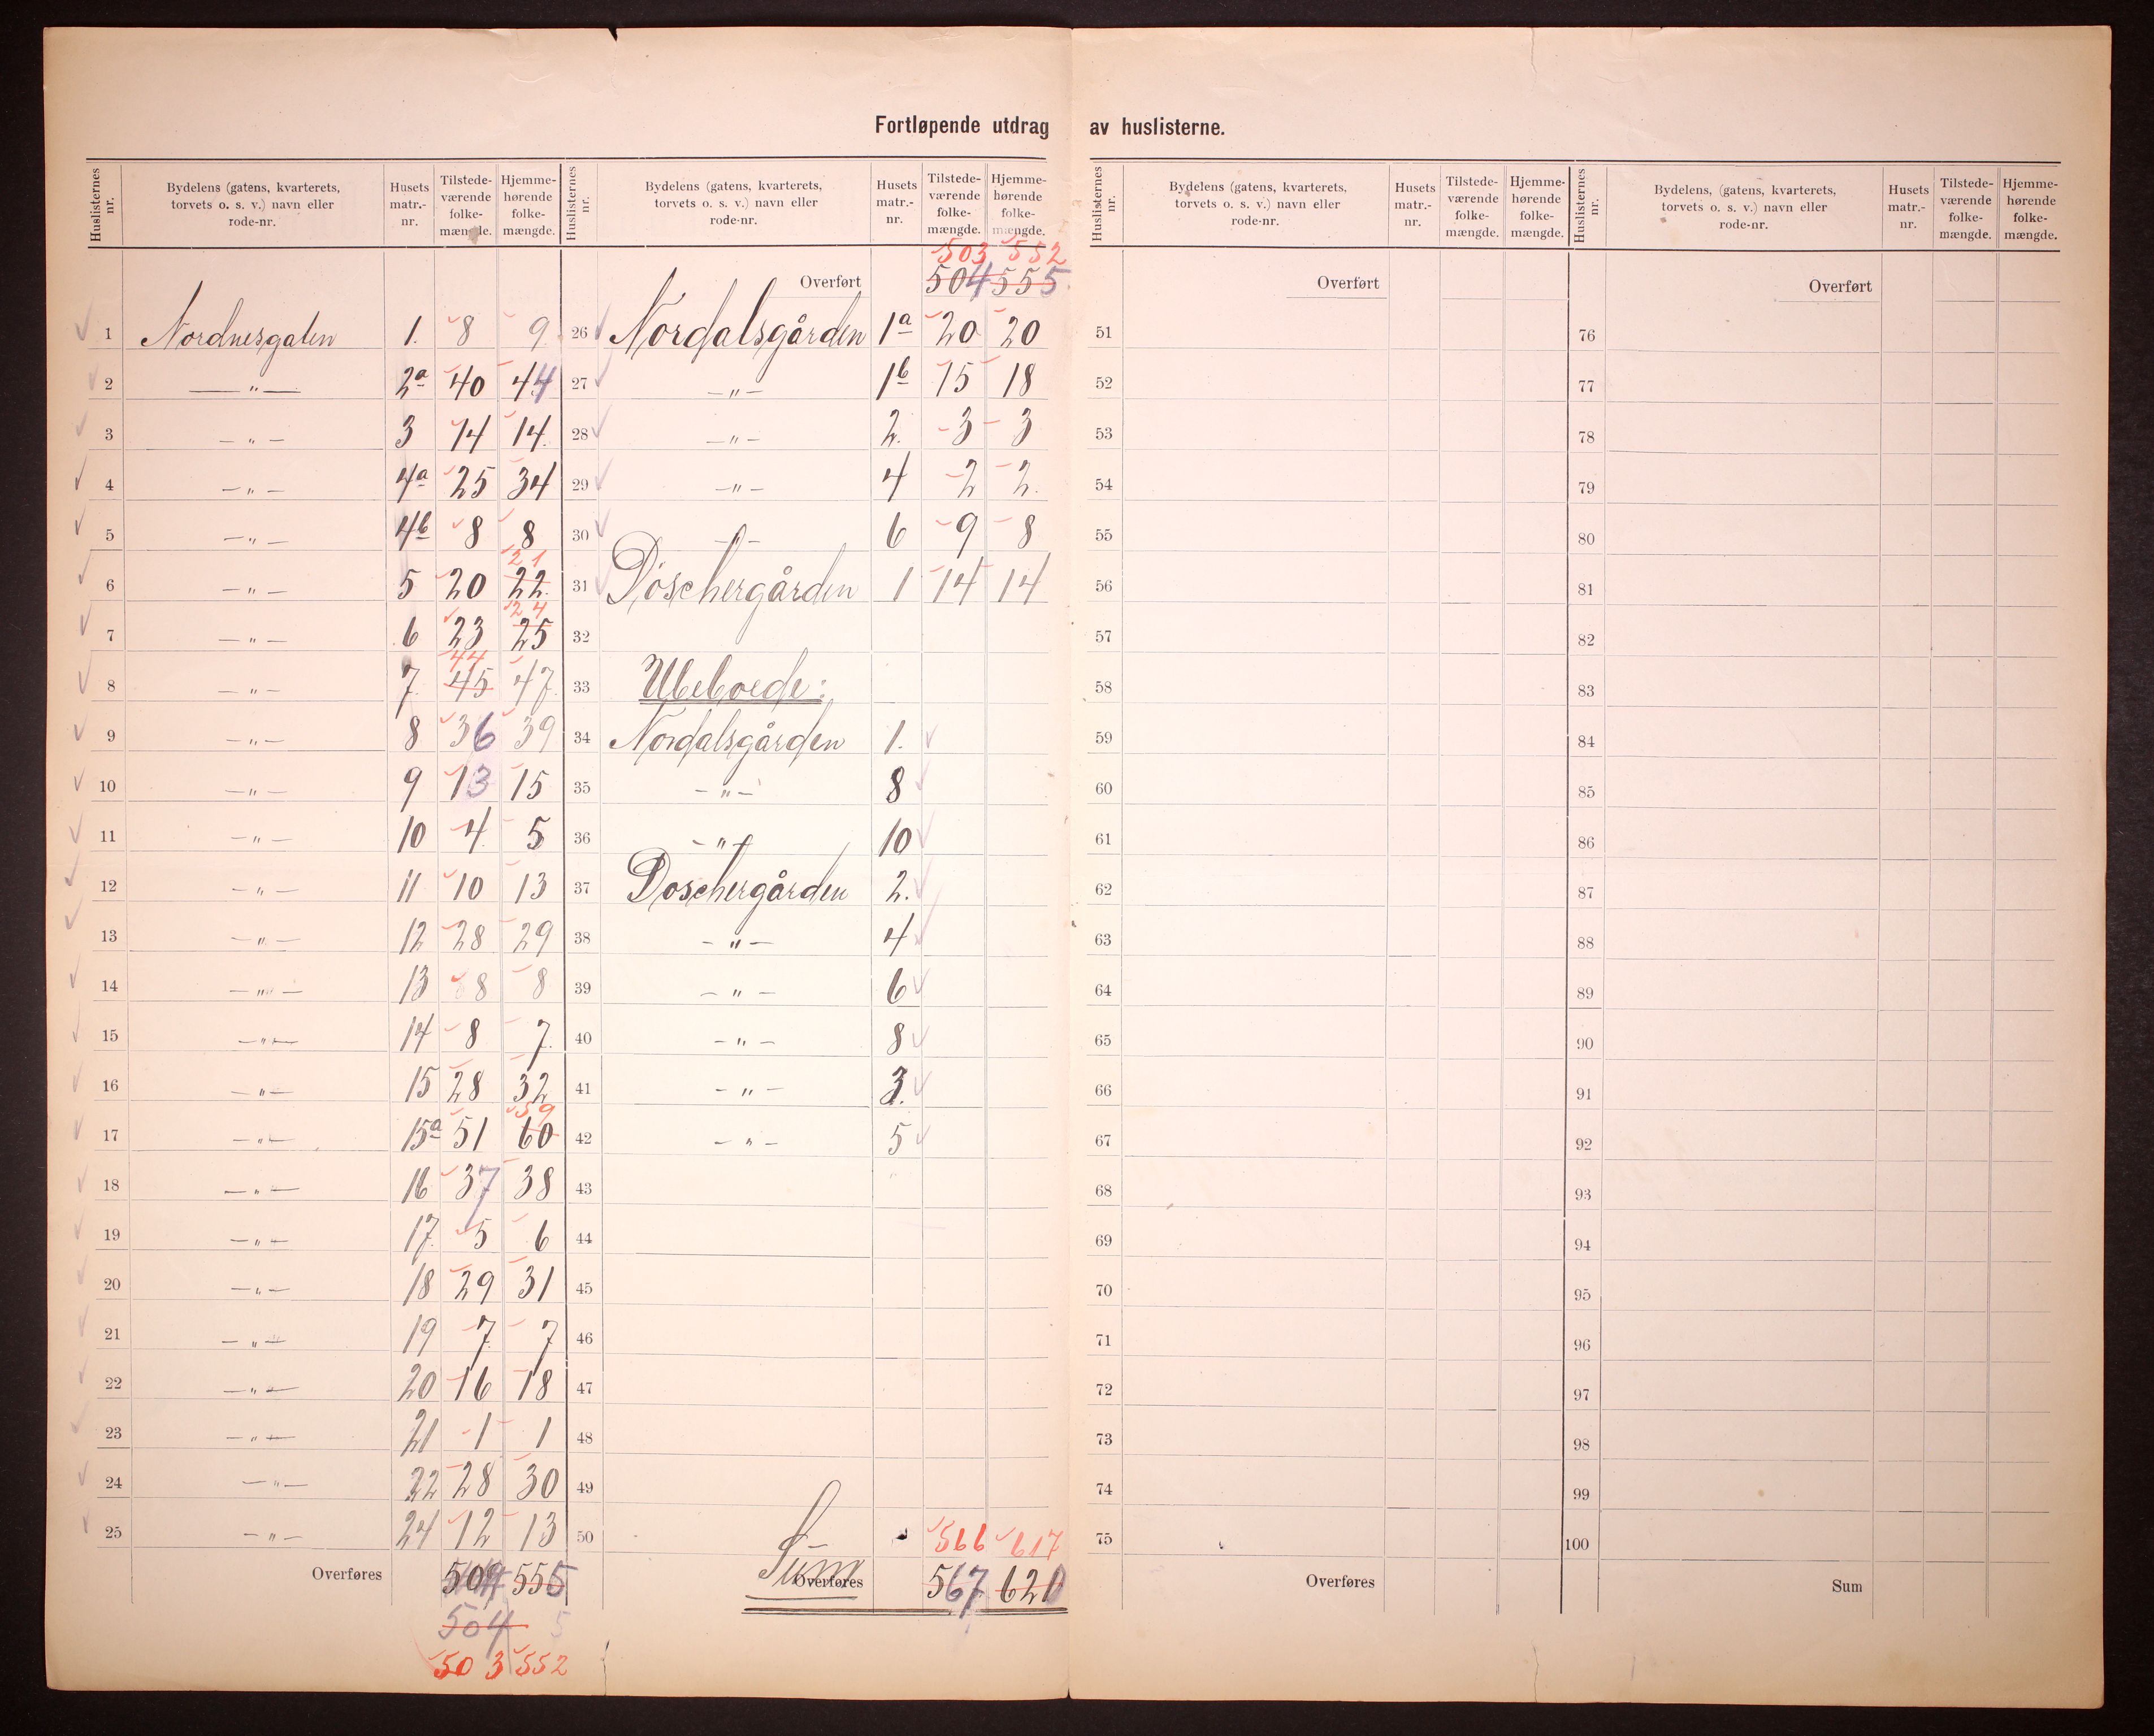 Fortløpende utdrag av huslisterne.
Huslisternes nr. | Bydelens (gatens, kvarterets, torvets o. s. v.) navn eller rode-nr. | Husets matr.-nr. | Tilstede-værende folke-mængde. | Hjemme-hørende folke-mængde.
1 Nordnesgaten 1. 8 9
2 —„— 2a 40 44
3 —„— 3 14 14.
4 —„— 4a 25 34
5 —„— 4b 8 8
6 —„— 5 20 22. 21
7 —„— 6 23 25 24
8 —„— 7 45 44 47.
9 —„— 8 36 39
10 —„— 9 13 15
11 —„— 10 4 5
12 —„— 11 10 13
13 —„— 12 28 29
14 —„— 13 8 8
15 —„— 14 8 7.
16 —„— 15 28 32
17 —„— 15a 51 60 59
18 —„— 16 37 38
19 —„— 17. 5 6
20 —„— 18 29 31
21 —„— 19 7 7
22 —„— 20 16 18
23 —„— 21 1 1
24 —„— 22 28 30
25 —„— 24 12 13
Overføres 555
504 5
503 552
Huslisternes nr. | Bydelens (gatens, kvarterets, torvets o. s. v.) navn eller rode-nr. | Husets matr.-nr. | Tilstede-værende folke-mængde. | Hjemme-hørende folke-mængde.
503 552
Overført 504 555.
26 Nordalsgården 1a 20 20
27 —„— 1b 15 18
28 —„— 2. 3 3
29 —„— 4 2 2.
30 —„— 6 9 8
31 Döschergården 1 14 14
32
33 Ubeboede:
34 Nordalsgården 1.
35 —„— 8
36 —„— 10
37 Doschergården 2.
38 —„— 4
39 —„— 6
40 —„— 8
41 —„— 3.
42 —„— 5
43
44
45
46
47
48
49
50 566 617
Sum Overføres 567 620
Huslisternes nr. | Bydelens (gatens, kvarterets, torvets o. s. v.) navn eller rode-nr. | Husets matr.-nr. | Tilstede-værende folke-mængde. | Hjemme-hørende folke-mængde.
Overført
51
52
53
54
55
56
57
58
59
60
61
62
63
64
65
66
67
68
69
70
71
72
73
74
75
Overføres
Huslisternes nr. | Bydelens, (gatens, kvarterets, torvets o. s. v.) navn eller rode-nr. | Husets matr.-nr. | Tilstede-værende folke-mængde. | Hjemme-hørende folke-mængde.
Overført
76
77
78
79
80
81
82
83
84
85
86
87
88
89
90
91
92
93
94
95
96
97
98
99
100
Sum